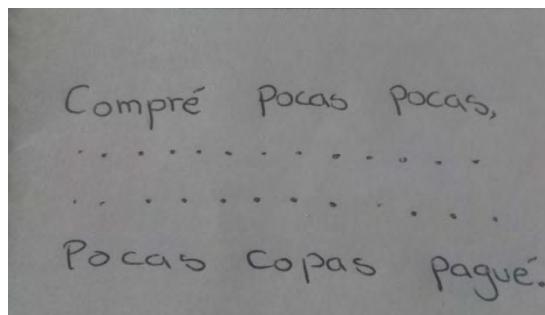 Compré pocas pocas,
. . . . . . . . . . . . . .
. . . . . . . . . . . . . .
Pocas copas pagué.